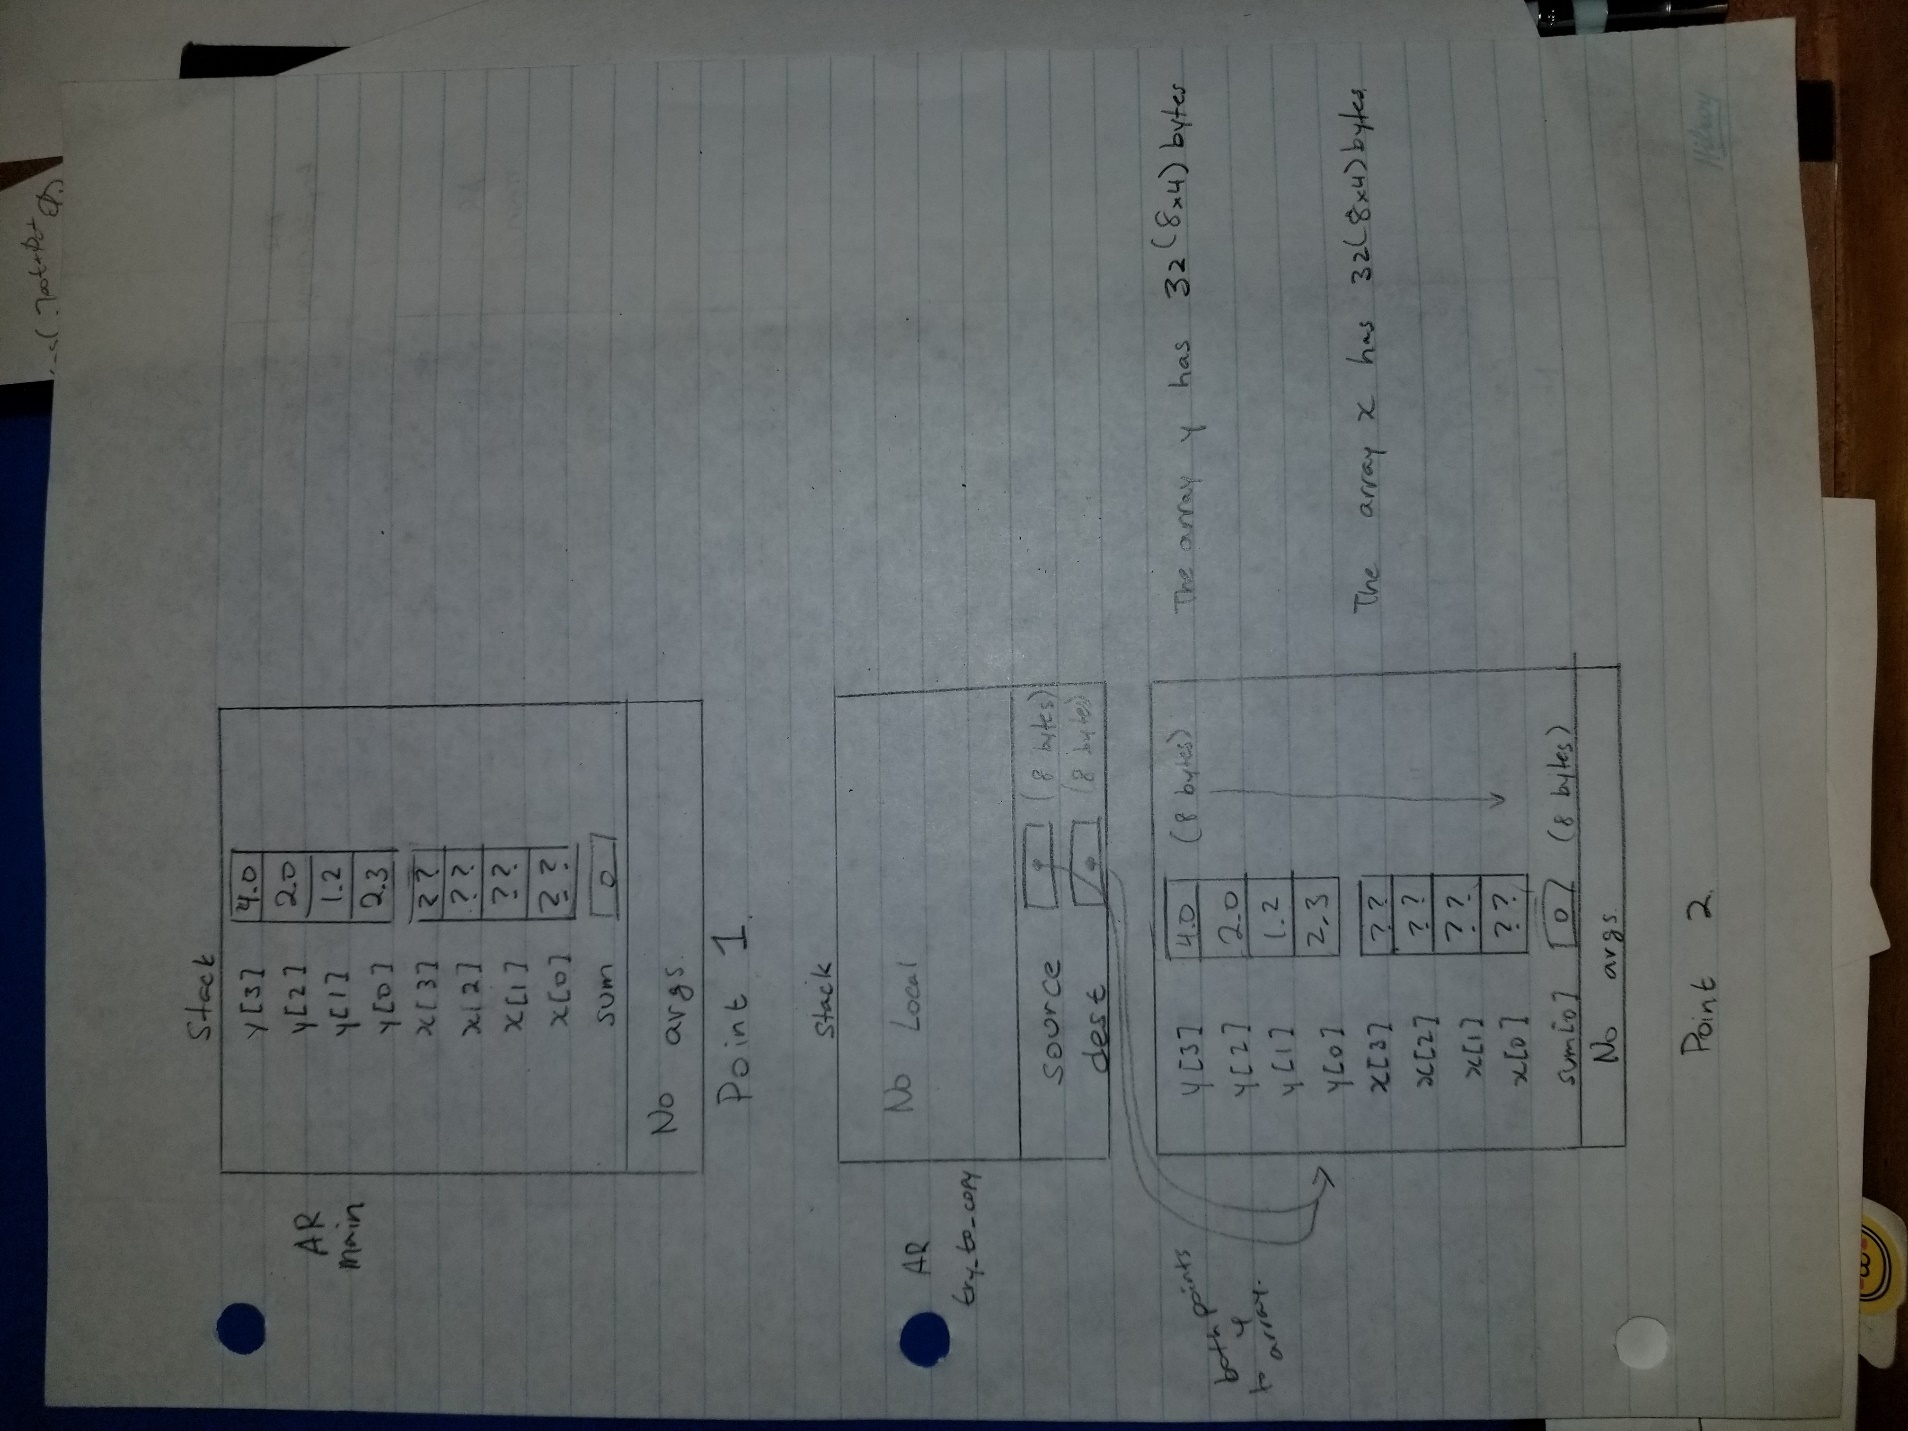 Stack
AR
main
y[3] 4.0
y[2] 2.0
y[1] 1.2
y[0] 2.3
x[3] ??
x[2] ??
x[1] ??
x[0] ??
sum 0
No args.
Point 1.
Stack
AR
try_to_copy
No Local
source (8 bytes)
dest (8 bytes)
both points
to y
array.
y[3] 4.0 (8 bytes)
y[2] 2.0
y[1] 1.2
y[0] 2.3
x[3] ??
x[2] ??
x[1] ??
x[0] ??
sum[0] 0 (8 bytes)
No args.
The array y has 32(8x4) bytes
The array x has 32(8x4)bytes.
Point 2.
Hilroy